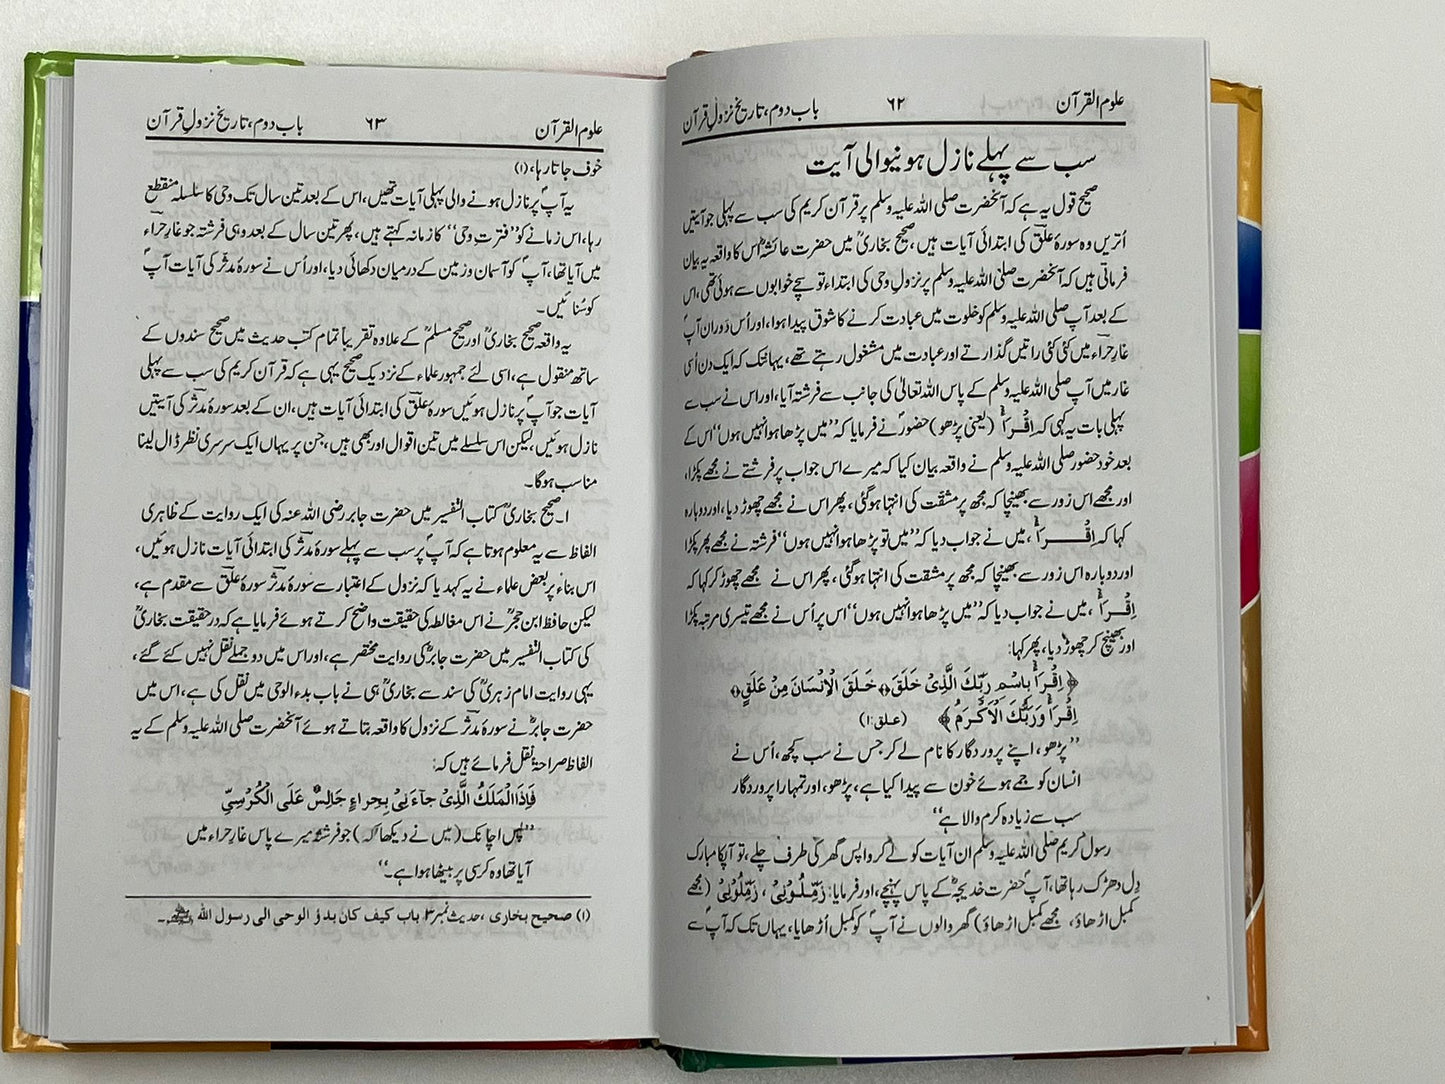 علوم القرآن ۶۲ باب دوم، تاریخ نزولِ قرآن
سب سے پہلے نازل ہونیوالی آیت
صحیح قول یہ ہے کہ آنحضرت صلی اللہ علیہ وسلم پر قرآن کریم کی سب سے پہلی جو آیتیں
اُتریں وہ سورۂ علق کی ابتدائی آیات ہیں، صحیح بخاریؒ میں حضرت عائشہؓ اس کا واقعہ یہ بیان
فرماتی ہیں کہ آنحضرت صلی اللہ علیہ وسلم پر نزولِ وحی کی ابتداء تو سچے خوابوں سے ہوئی تھی، اس
کے بعد آپ صلی اللہ علیہ وسلم کو خلوت میں عبادت کرنے کا شوق پیدا ہوا، اور اُس دَوران آپؐ
غارِ حراء میں کئی کئی راتیں گذارتے اور عبادت میں مشغول رہتے تھے، یہانتک کہ ایک دن اُسی
غار میں آپ صلی اللہ علیہ وسلم کے پاس اللہ تعالیٰ کی جانب سے فرشتہ آیا، اور اس نے سب سے
پہلی بات یہ کہی کہ اِقْرَأْ (یعنی پڑھو) حضورؐ نے فرمایا کہ ’’میں پڑھا ہوا نہیں ہوں‘‘ اس کے
بعد خود حضور صلی اللہ علیہ وسلم نے واقعہ بیان کیا کہ میرے اس جواب پر فرشتے نے مجھے پکڑا،
اور مجھے اس زور سے بھینچا کہ مجھ پر مشقت کی انتہا ہوگئی، پھر اس نے مجھے چھوڑ دیا، اور دوبارہ
کہا کہ اِقْرَأْ، میں نے جواب دیا کہ ’’میں تو پڑھا ہوا نہیں ہوں‘‘ فرشتہ نے مجھے پھر پکڑا
اور دوبارہ اس زور سے بھینچا کہ مجھ پر مشقت کی انتہا ہوگئی، پھر اس نے مجھے چھوڑ کر کہا کہ
اِقْرَأْ، میں نے جواب دیا کہ ’’میں پڑھا ہوا نہیں ہوں‘‘ اس پر اُس نے مجھے تیسری مرتبہ پکڑا
اور بھینچ کر چھوڑ دیا، پھر کہا:
﴿اِقْرَأْ بِاسْمِ رَبِّكَ الَّذِىْ خَلَقَ﴾ خَلَقَ الْاِنْسَانَ مِنْ عَلَقٍ﴾
اِقْرَأْ وَرَبُّكَ الْاَكْرَمُ﴾ (علق:۱)
’’پڑھو، اپنے پروردگار کا نام لے کر جس نے سب کچھ، اُس نے
انسان کو جمے ہوئے خون سے پیدا کیا ہے، پڑھو، اور تمہارا پروردگار
سب سے زیادہ کرم والا ہے‘‘
رسول کریم صلی اللہ علیہ وسلم ان آیات کو لے کر واپس گھر کی طرف چلے، تو آپکا مبارک
دِل دھڑک رہا تھا، آپؐ حضرت خدیجہؓ کے پاس پہنچے، اور فرمایا: زَمِّلُوْنِىْ، زَمِّلُوْنِىْ (مجھے
کمبل اڑھاؤ، مجھے کمبل اڑھاؤ) گھر والوں نے آپؐ کو کمبل اُڑھایا، یہاں تک کہ آپؐ سے
علوم القرآن ۶۳ باب دوم، تاریخ نزولِ قرآن
خوف جاتا رہا، (۱)
یہ آپؐ پر نازل ہونے والی پہلی آیات تھیں، اس کے بعد تین سال تک وحی کا سلسلہ منقطع
رہا، اس زمانے کو ’’فترتِ وحی‘‘ کا زمانہ کہتے ہیں، پھر تین سال کے بعد وہی فرشتہ جو غارِ حراء
میں آیا تھا، آپؐ کو آسمان و زمین کے درمیان دکھائی دیا، اور اُس نے سورۂ مدثر کی آیات آپؐ
کو سُنائیں۔
یہ واقعہ صحیح بخاریؒ اور صحیح مسلمؒ کے علاوہ تقریباً تمام کتب حدیث میں صحیح سندوں کے
ساتھ منقول ہے، اسی لئے جمہور علماء کے نزدیک صحیح یہی ہے کہ قرآن کریم کی سب سے پہلی
آیات جو آپؐ پر نازل ہوئیں سورۂ علق کی ابتدائی آیات ہیں، ان کے بعد سورۂ مدثر کی آیتیں
نازل ہوئیں، لیکن اس سلسلے میں تین اقوال اور بھی ہیں، جن پر یہاں ایک سرسری نظر ڈال لینا
مناسب ہوگا۔
۱۔ صحیح بخاریؒ کتاب التفسیر میں حضرت جابر رضی اللہ عنہ کی ایک روایت کے ظاہری
الفاظ سے یہ معلوم ہوتا ہے کہ آپؐ پر سب سے پہلے سورۂ مدثر کی ابتدائی آیات نازل ہوئیں،
اس بناء پر بعض علماء نے یہ کہدیا کہ نزول کے اعتبار سے سورۂ مدثر سورۂ علق سے مقدم ہے،
لیکن حافظ ابن حجرؒ نے اس مغالطہ کی حقیقت واضح کرتے ہوئے فرمایا ہے کہ درحقیقت بخاریؒ
کی کتاب التفسیر میں حضرت جابرؓ کی روایت مختصر ہے، اور اس میں دو جملے نقل نہیں کئے گئے،
یہی روایت امام زہریؒ کی سند سے بخاریؒ ہی نے باب بدء الوحی میں نقل کی ہے، اس میں
حضرت جابرؓ نے سورۂ مدثر کے نزول کا واقعہ بتاتے ہوئے آنحضرت صلی اللہ علیہ وسلم کے یہ
الفاظ صراحۃً نقل فرمائے ہیں کہ:
فَاِذَا الْمَلَكُ الَّذِىْ جَآءَنِىْ بِحِرَاءٍ جَالِسٌ عَلَى الْكُرْسِيِّ
’’پس اچانک (میں نے دیکھا کہ) جو فرشتہ میرے پاس غارِ حراء میں
آیا تھا وہ کرسی پر بیٹھا ہوا ہے۔‘‘
(۱) صحیح بخاری، حدیث نمبر ۳ باب کیف کان بدؤ الوحی الی رسول اللہ ﷺ۔